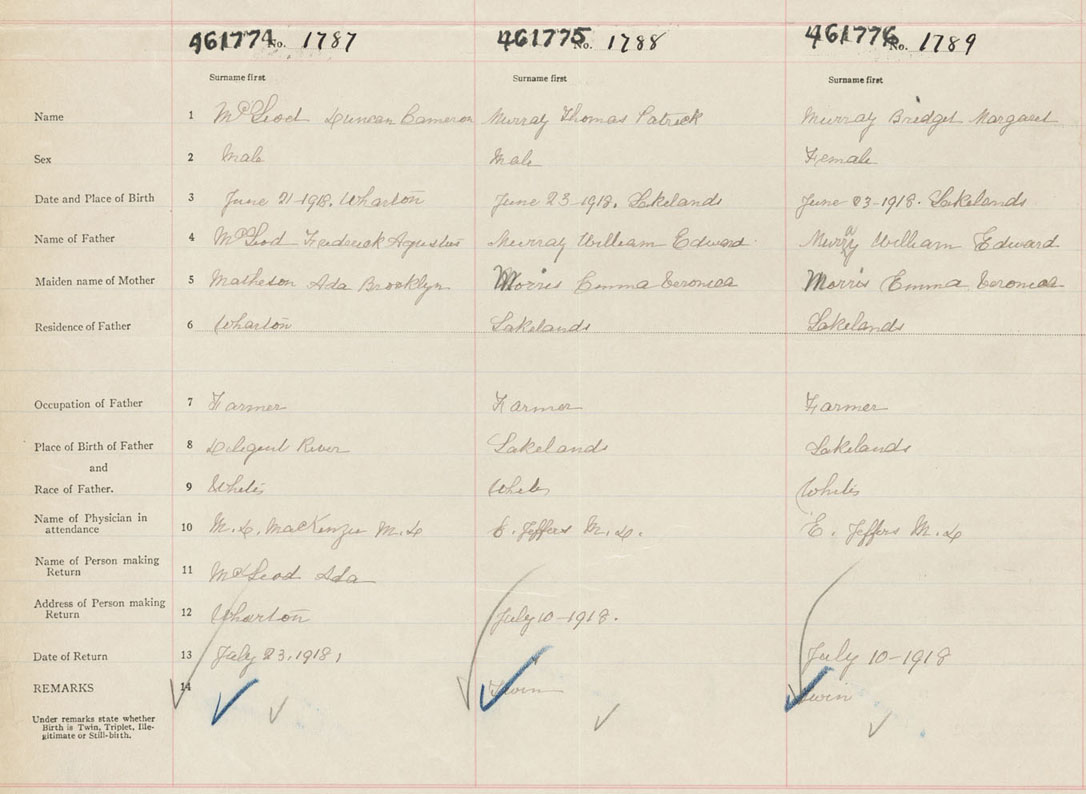 461774 No. 1787 461775 No. 1788 461776 No. 1789
Surname first Surname first Surname first
Name 1 McLeod Duncan Cameron Murray Thomas Patrick Murray Bridget Margaret
Sex 2 Male Male Female
Date and Place of Birth 3 June 21-1918. Wharton June 23-1918. Lakelands June 23-1918. Lakelands
Name of Father 4 McLeod Frederick Agustus Murray William Edward Murray William Edward
Maiden name of Mother 5 Matheson Ada Brooklyn Morris Emma Veronica Morris Emma Veronica
Residence of Father 6 Wharton Lakelands Lakelands
Occupation of Father 7 Farmer Farmer Farmer
Place of Birth of Father 8 Diligent River Lakelands Lakelands
and
Race of Father. 9 White White White
Name of Physician in
attendance 10 M. D. MacKenzie M.D E. Jeffers M.D. E. Jeffers M.D
Name of Person making
Return 11 McLeod Ada
Address of Person making
Return 12 Wharton July 10-1918.
Date of Return 13 July 23, 1918, July 10-1918
REMARKS 14 Twin Twin
Under remarks state whether
Birth is Twin, Triplet, Ille-
gitimate or Still-birth.